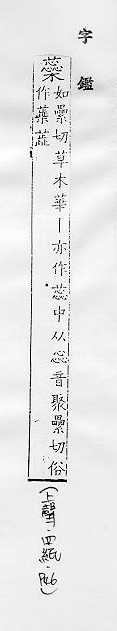 字鑑
蘂
如壘切草木華丨亦作蕊中从惢音聚壘切俗
作蘃蕋
(上聲.四紙.P46)